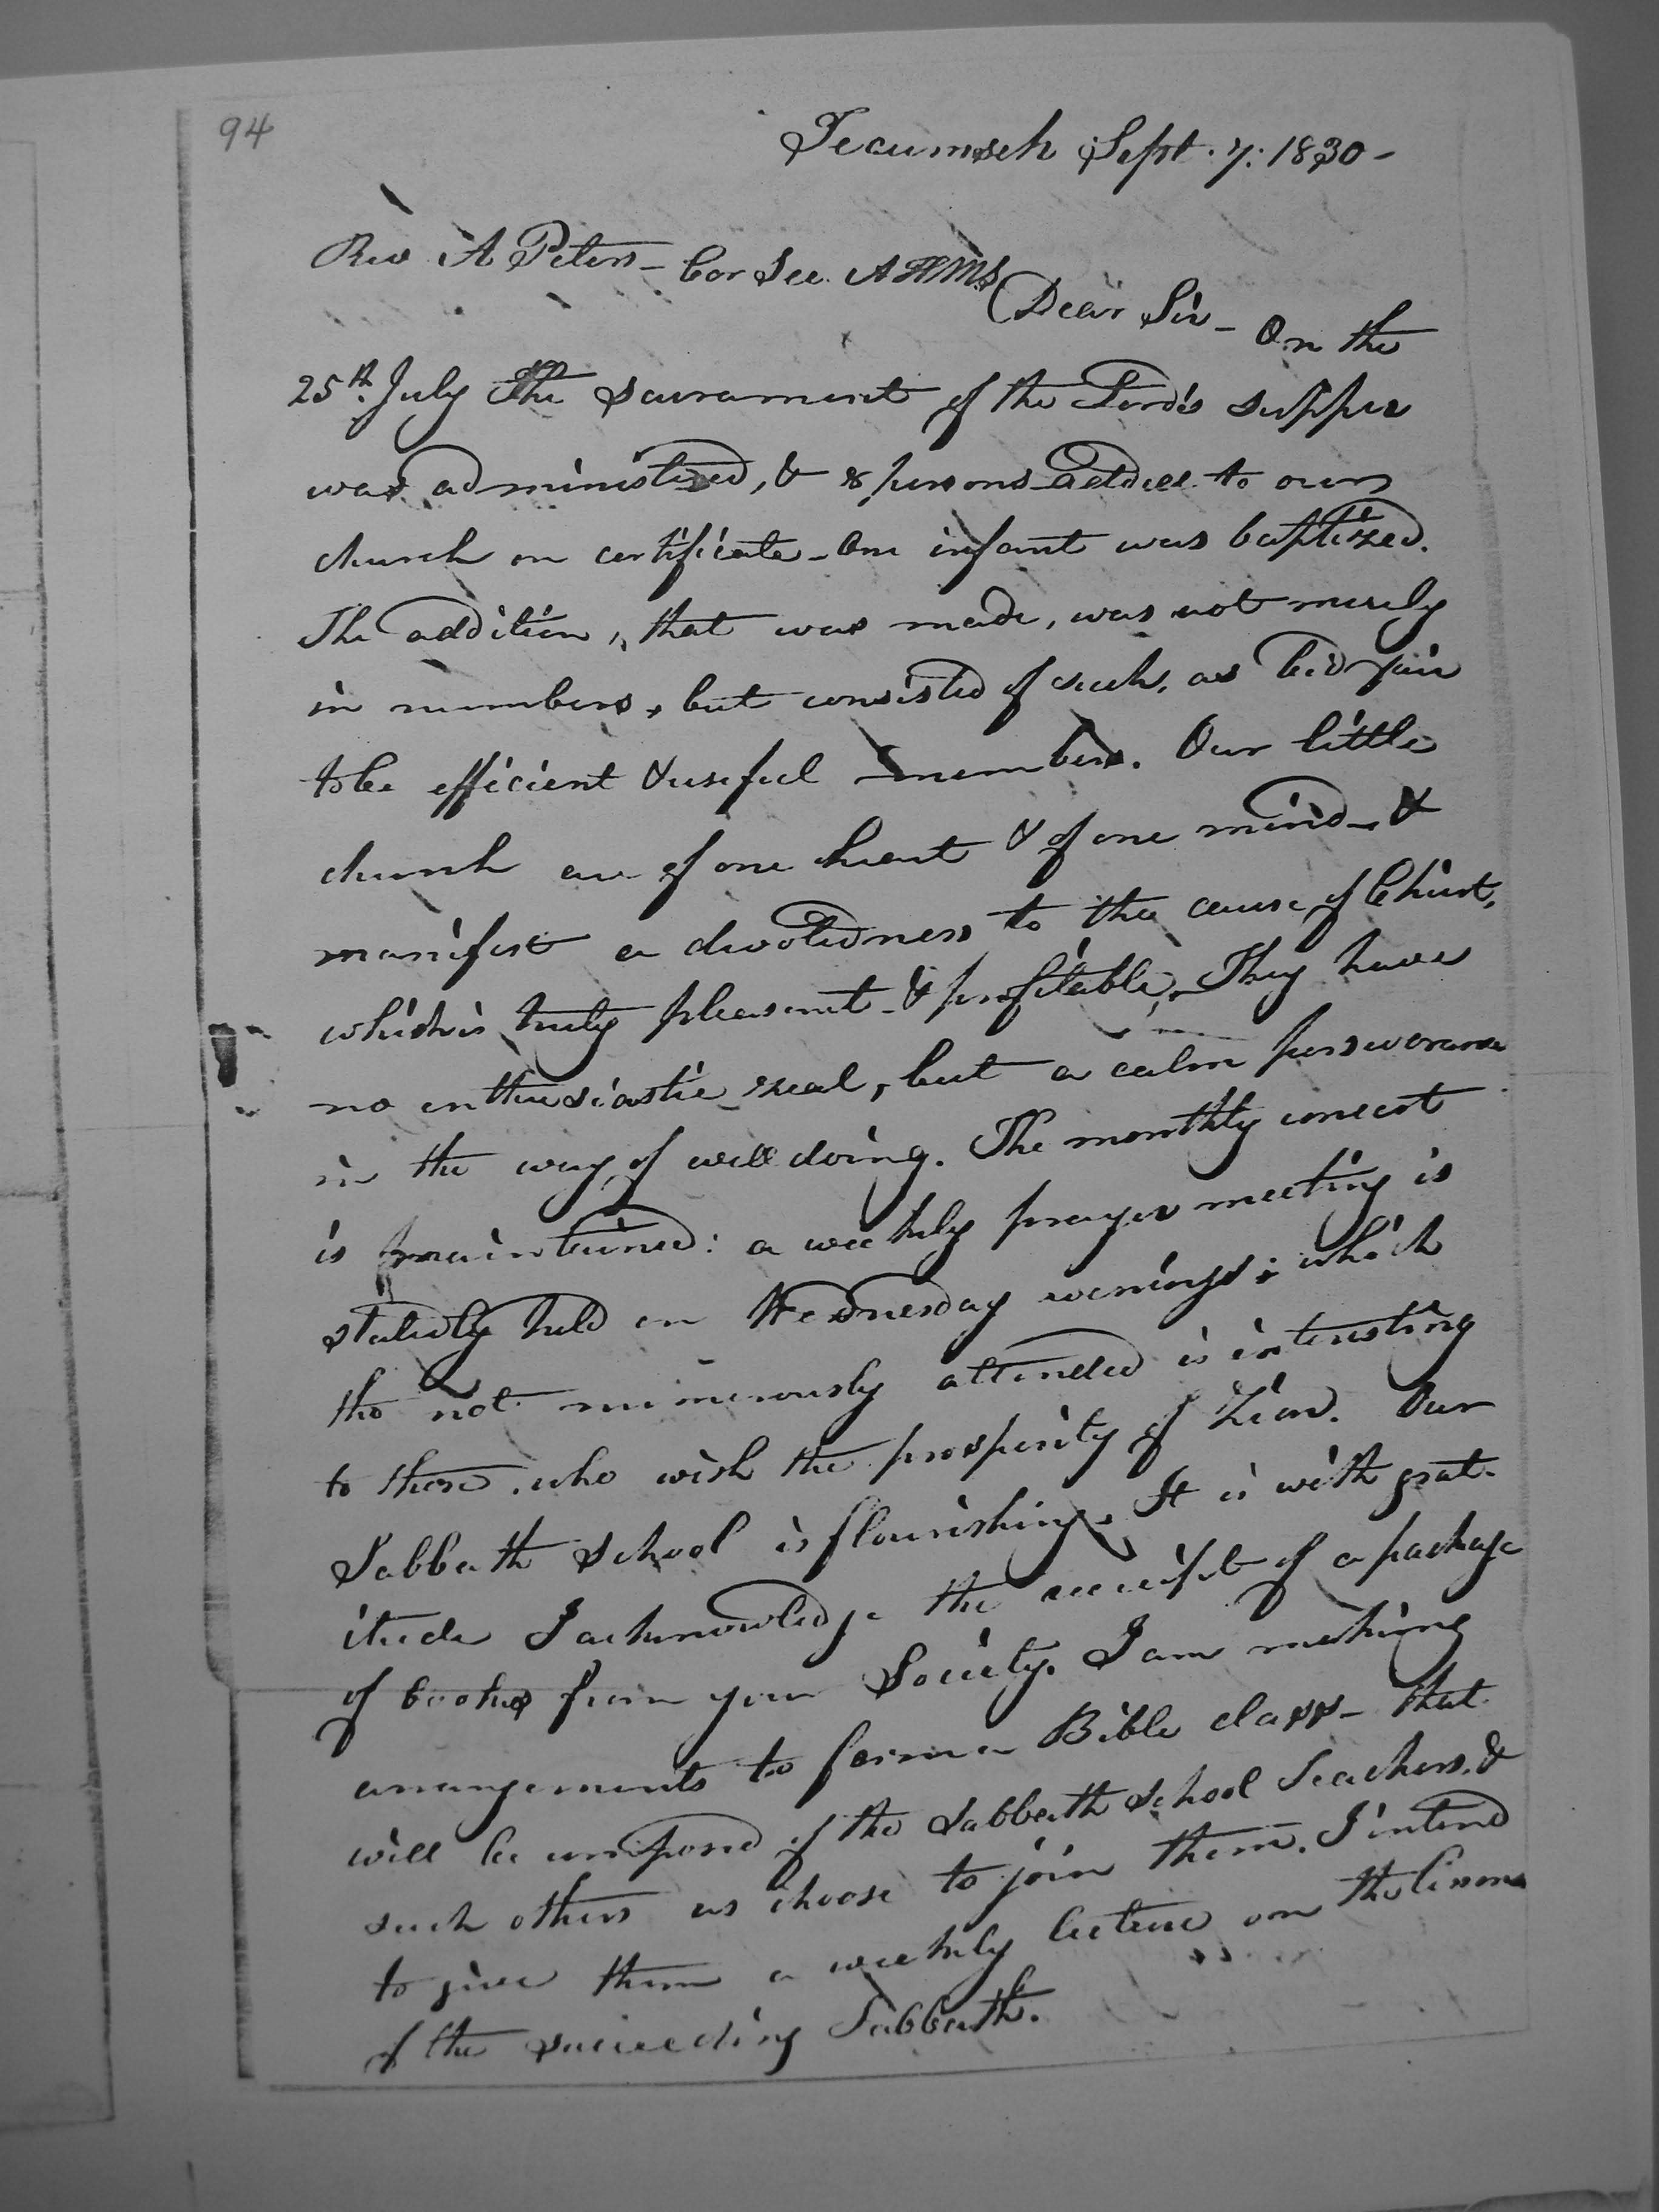 94
Tecumseh Sept. 7: 1830 -
Rev A Peters - Cor Sec. A H M S
Dear Sir - On the
25th. July The sacrament of the Lord's supper
was administered, & 8 persons added to our
church on certificate - One infant was baptized.
The addition, that was made, was not merely
in numbers, but consisted of such, as bid fair
to be efficient & useful members. Our little
church are of one heart & of one mind - &
manifest a devotedness to the cause of Christ,
which is truly pleasant & profitable. They have
no enthusiastic zeal, but a calm perseverance
in the way of well doing. The monthly concert
is maintained: a weekly prayer meeting is
statedly held on Wednesday evenings; which
tho not numerously attended is interesting
to those, who wish the prosperity of Zion. Our
Sabbath School is flourishing. It is with grat-
itude I acknowledge the receipt of a package
of books from your Society. I am making
arrangements to form a Bible class - that
will be composed of the Sabbath School Teachers, &
such others as choose to join them. I intend
to give them a weekly lecture on the lessons
of the succeeding Sabbath.